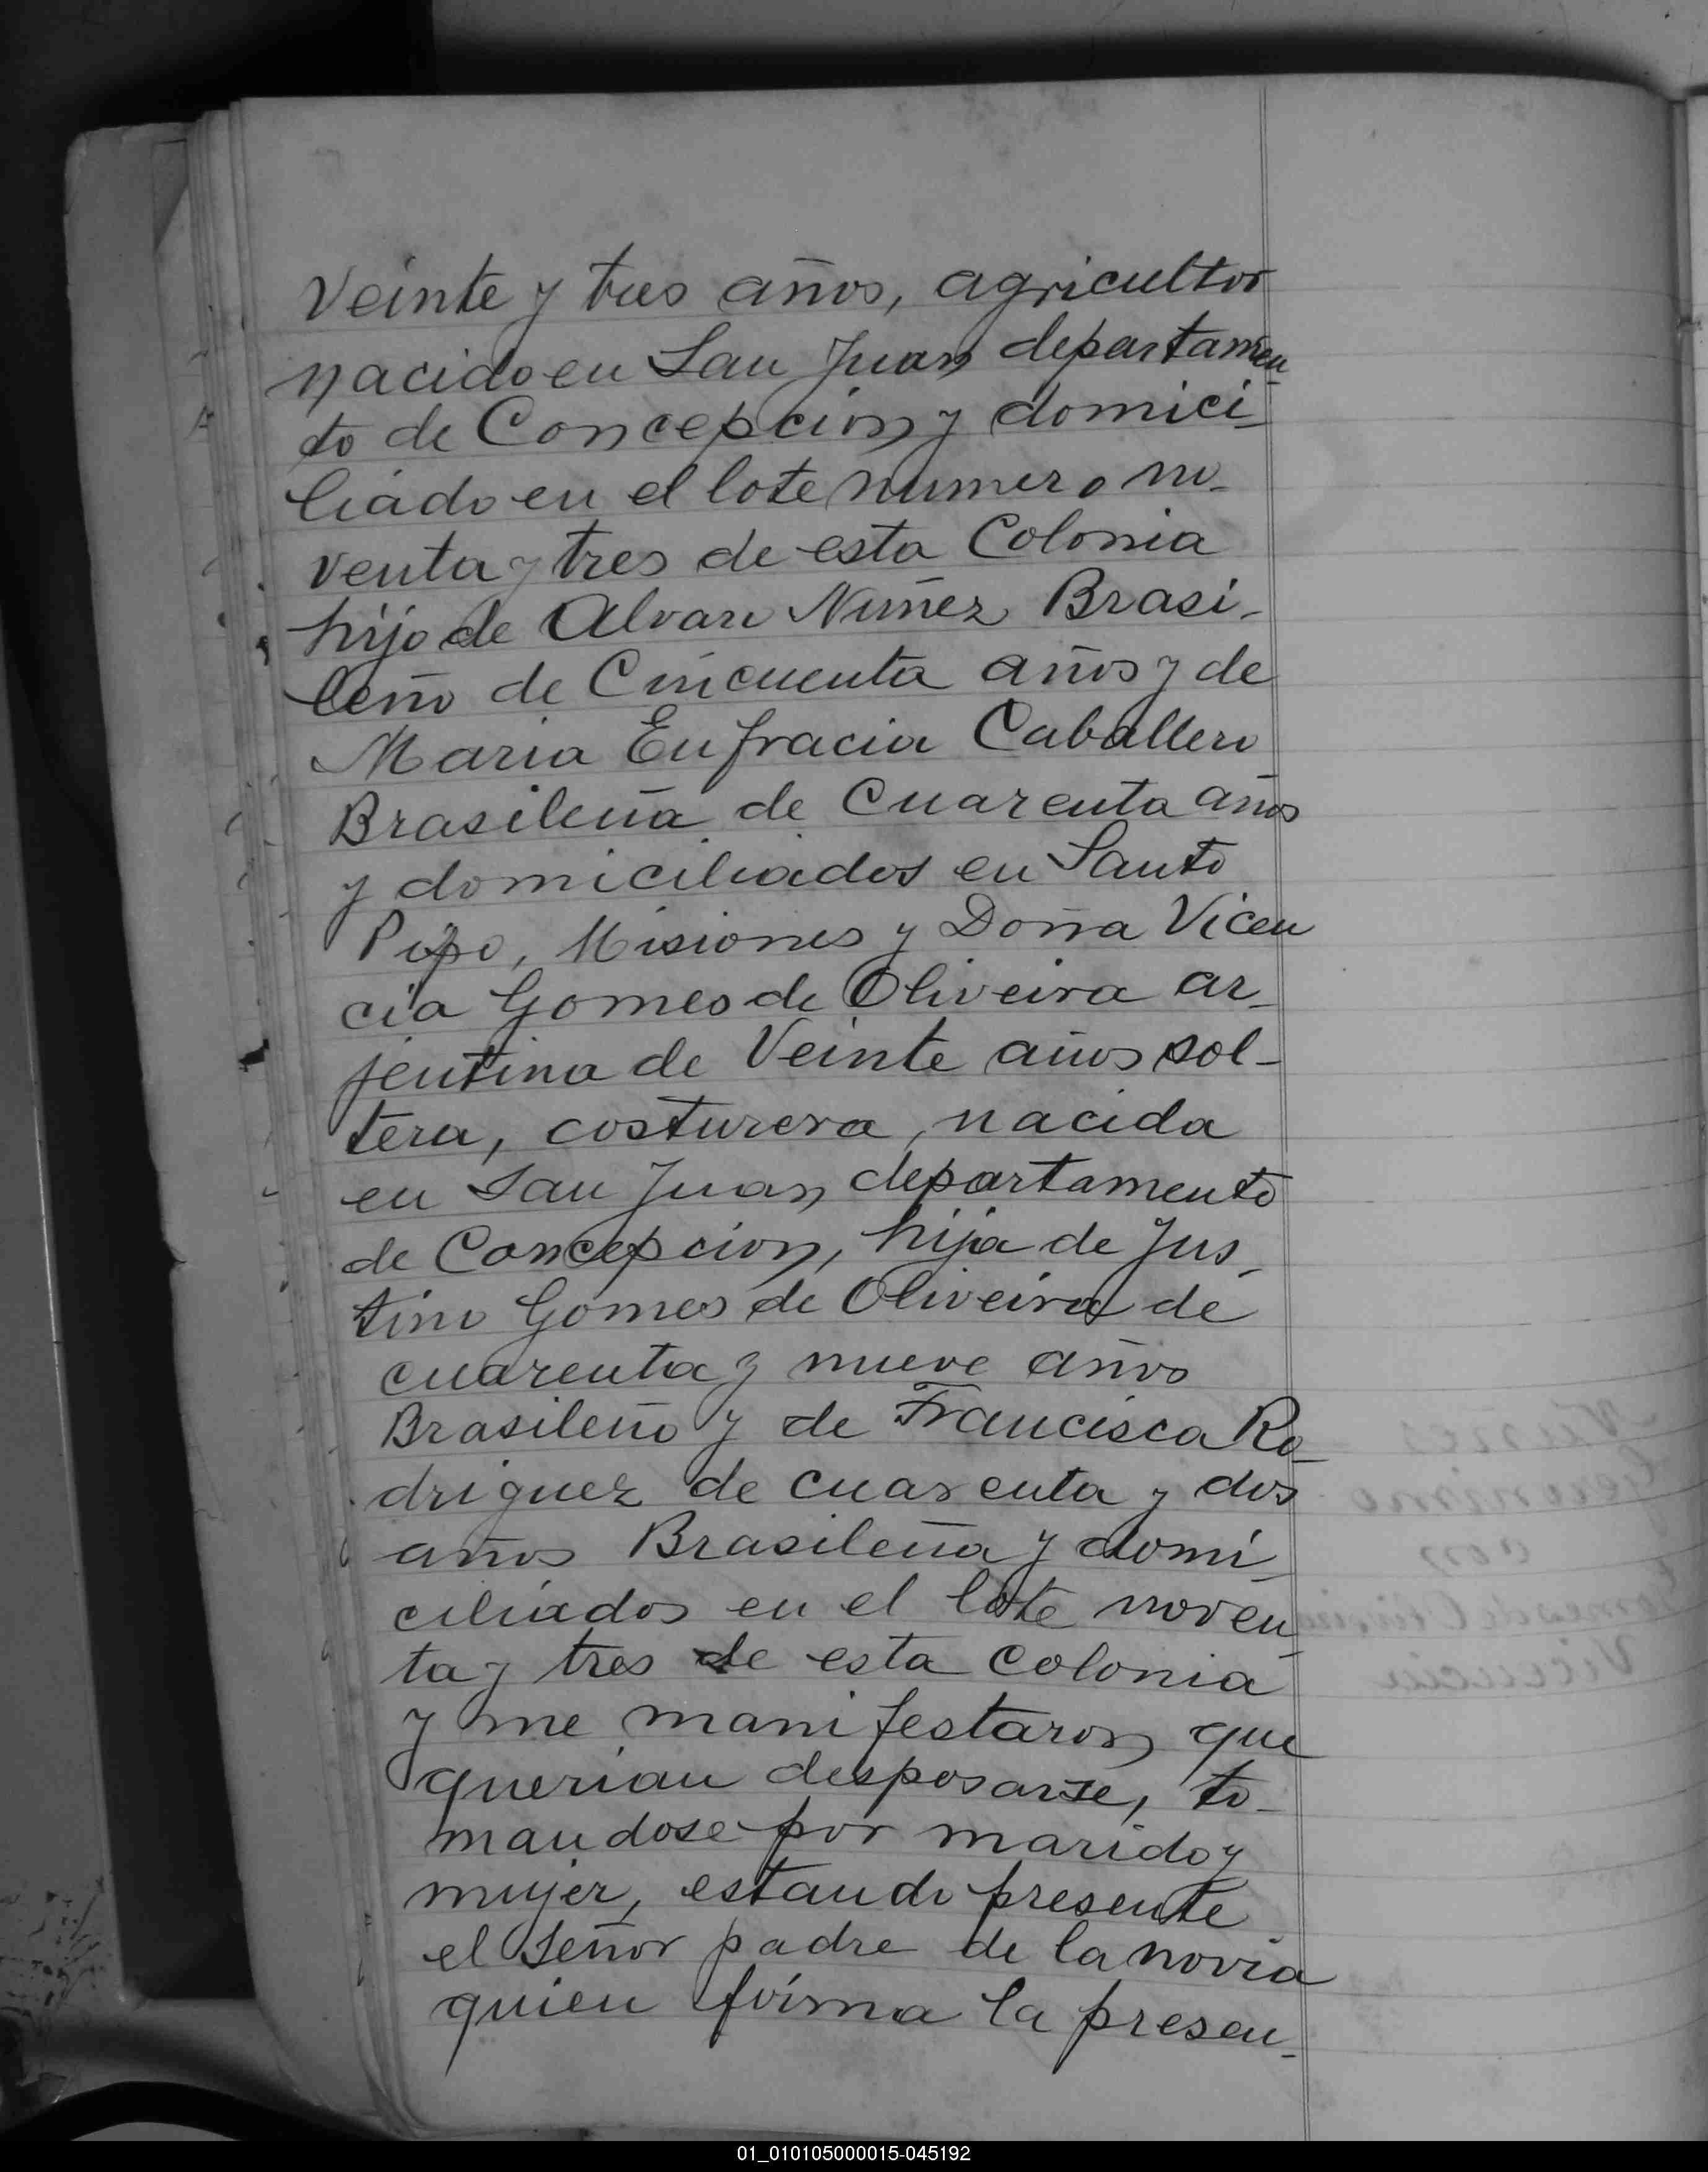 Veinte y tres años, agricultor
nacido en San Juan departamen_
to de Concepcion y domici_
liado en el lote numero no_
venta y tres de esta Colonia
hijo de Alvaro Nuñez Brasi_
leño de Cincuenta años y de
Maria Eufracia Caballero
Brasileña de Cuarenta años
y domiciliados en Santo
Pipo, Misiones y Doña Vicen
cia Gomes de Oliveira ar_
jentina de Veinte años sol_
tera, costurera, nacida
en San Juan departamento
de Concepcion, hija de Jus_
tino Gomes de Oliveira de
cuarenta y nueve años
Brasileño y de Francisca Ro_
driguez de cuarenta y dos
años Brasileña y domi_
ciliados en el lote noven_
ta y tres de esta Colonia
y me manifestaron que
querian desposarse, to_
mandose por marido y
mujer, estando presente
el Señor padre de la novia
quien firma la presen_
01_010105000015-045192